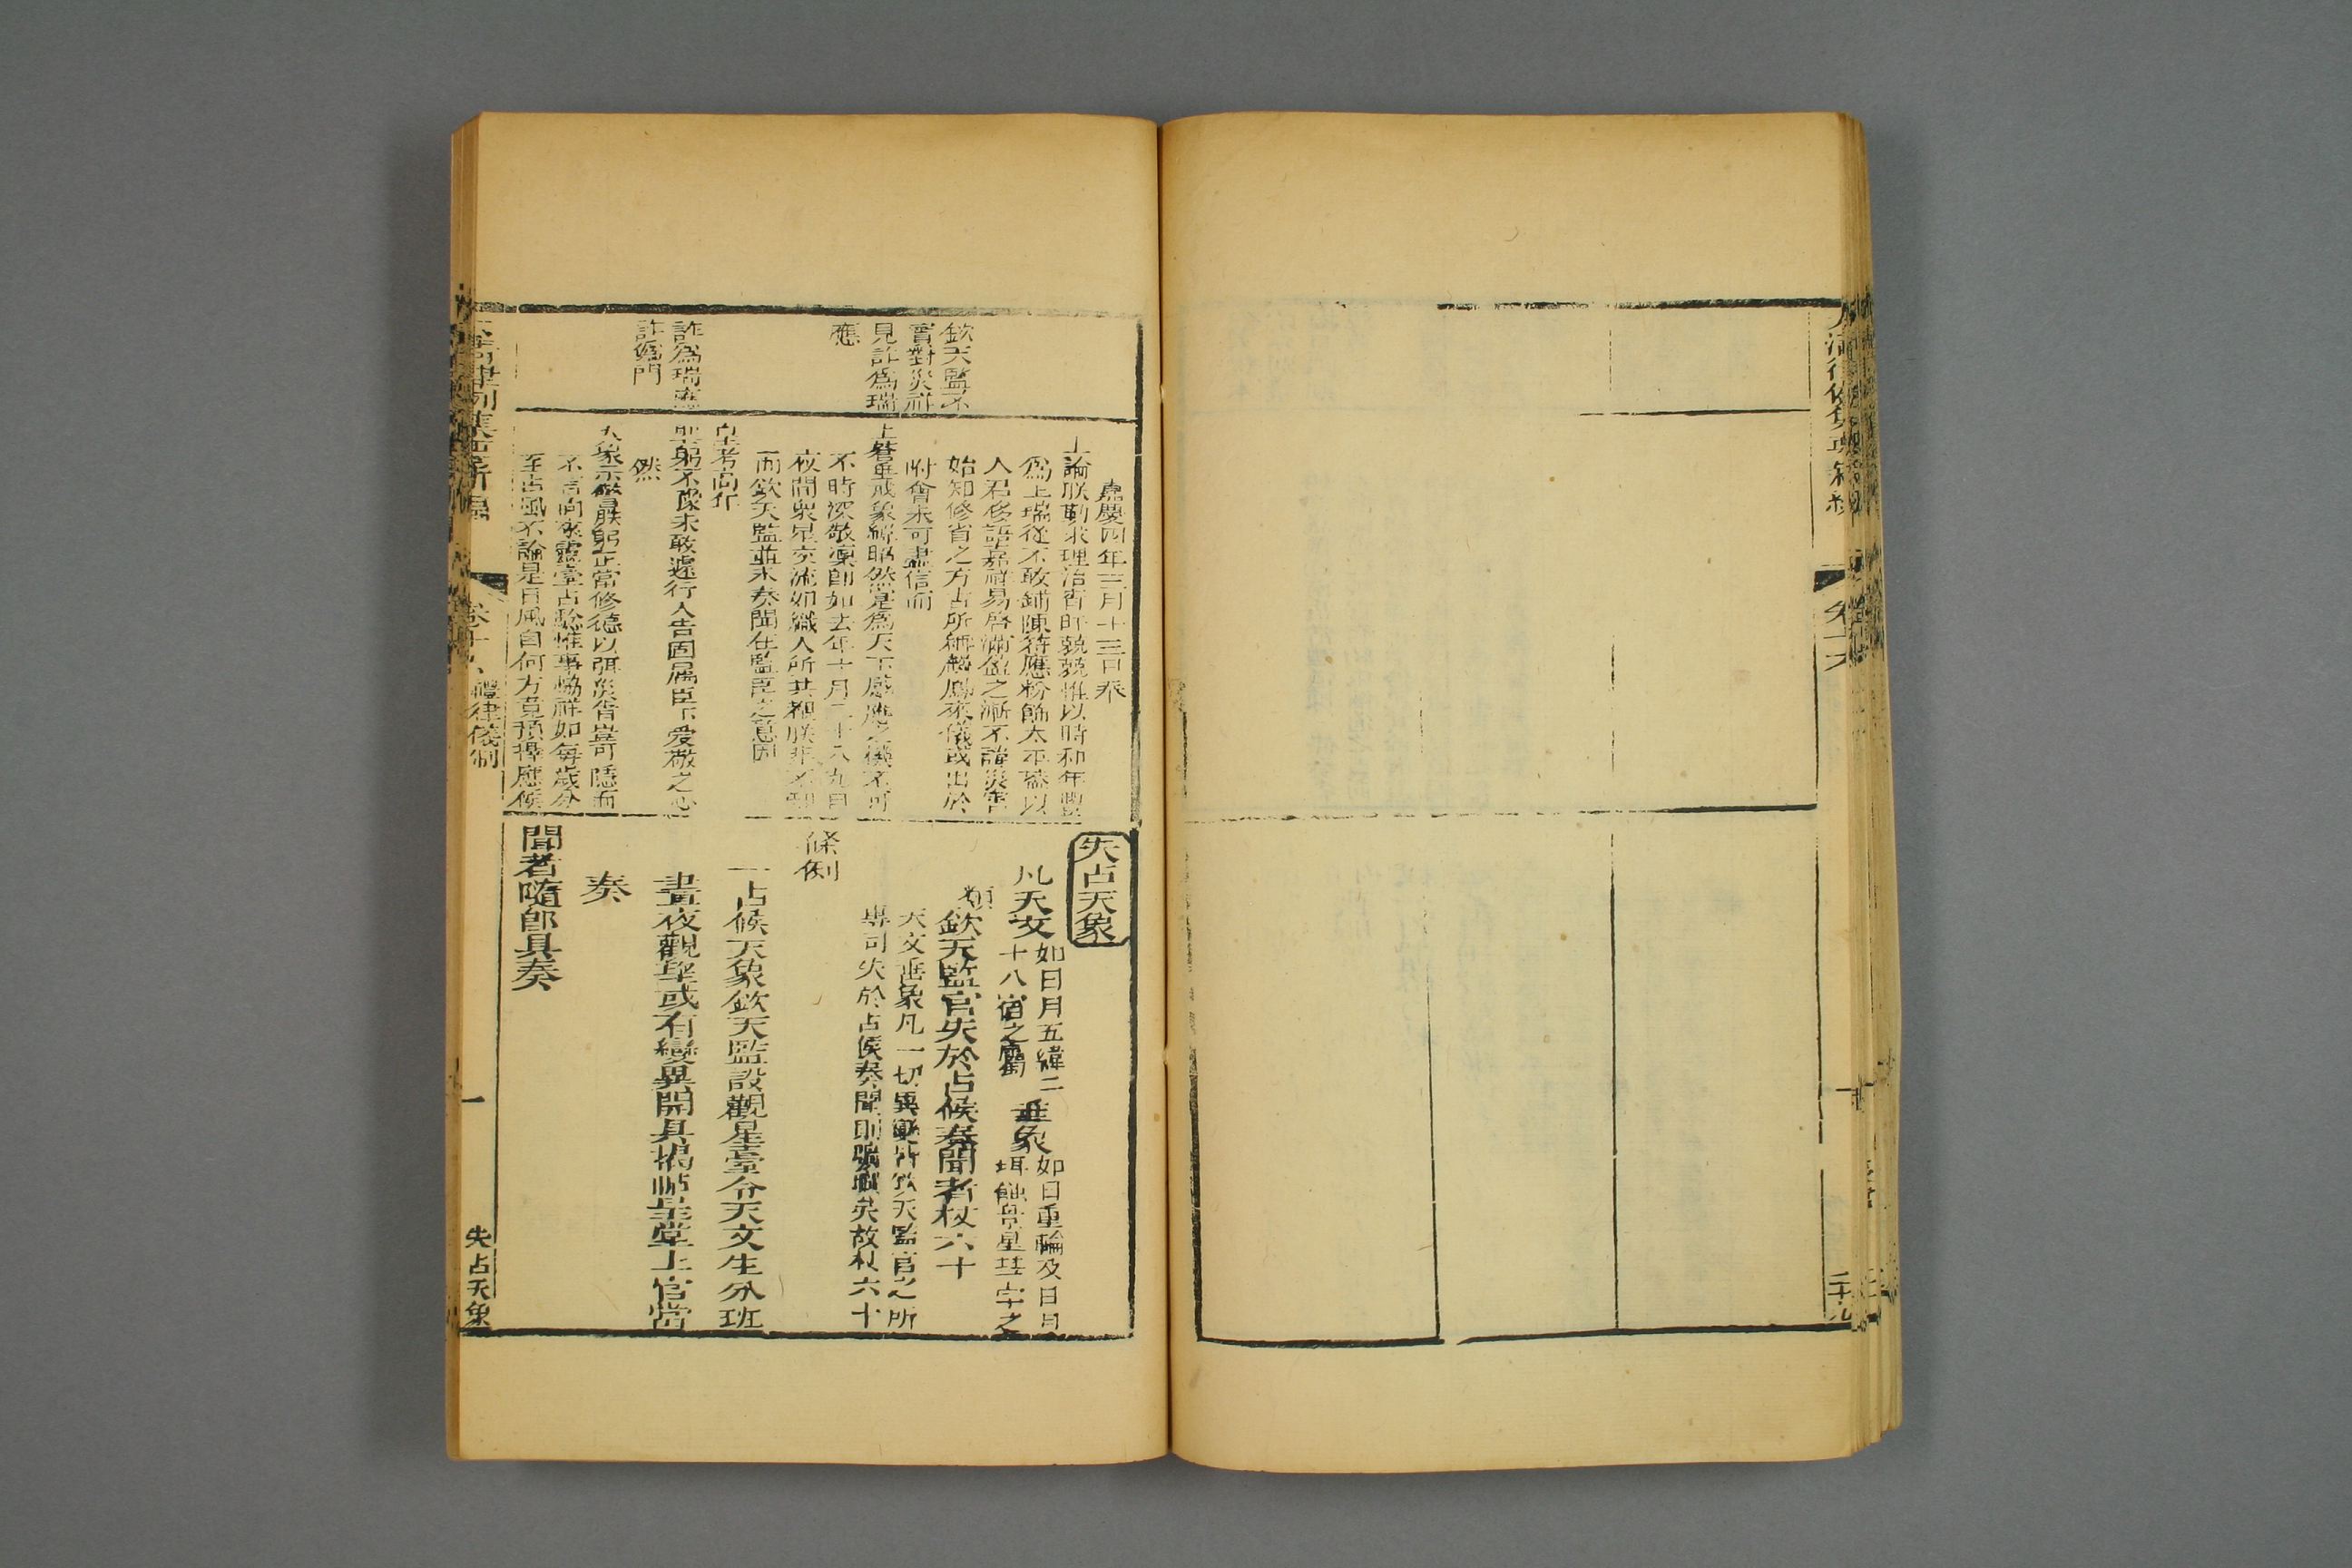 欽天監不
實對災祥
見詐爲瑞
應
詐爲瑞應
詐僞門
嘉慶四年三月十三日奉
上諭朕勤求理治宵旰兢兢惟以時和年豐
爲上瑞從不敢鋪陳符應粉飾太平蓋以
人君侈語嘉祥易啓滿盈之漸不諱災眚
始知修省之方古所稱麟鳳來儀或出於
附會未可盡信而
上蒼垂戒象緯昭然是爲天下感應之機不可
不時深敬凜卽如去年十月二十八九日
夜間衆星交流如織人所共覩朕非不知
而欽天監並未奏聞在監臣之意因
皇考高年
聖躬不豫未敢遽行入告固屬臣下愛敬之心
然
天象示儆朕躬正當修德以弭災眚豈可隱而
不言向來靈臺占驗惟事
至占風不論是日風自何方竟預揑應候
失占天象
凡天文如日月五緯二十八宿之屬垂象如日重輪及日月珥蝕景星彗孛之
類欽天監官失於占候奏聞者杖六十
天文垂象凡一切異變皆欽天監官之所
專司失於占候奏聞則曠厥職矣故杖六十
條例
一占候天象欽天監設觀星臺令天文生分班
晝夜觀望或有變異開具揭帖呈堂上官當
奏
聞者隨卽具奏
卷十八 禮律儀制
一
失占天象
二十九